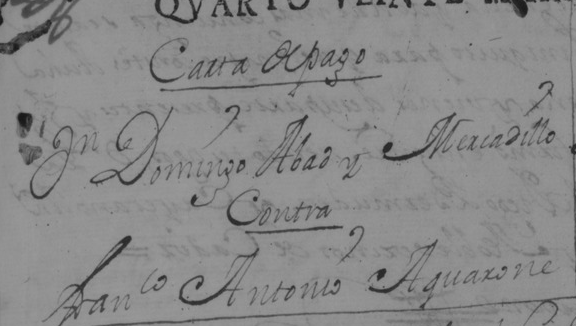 QVARTO VEINTE
Carta de pago
Jn Domingo Abad y Mercadillo
Contra
Franco Antonio Aquarone